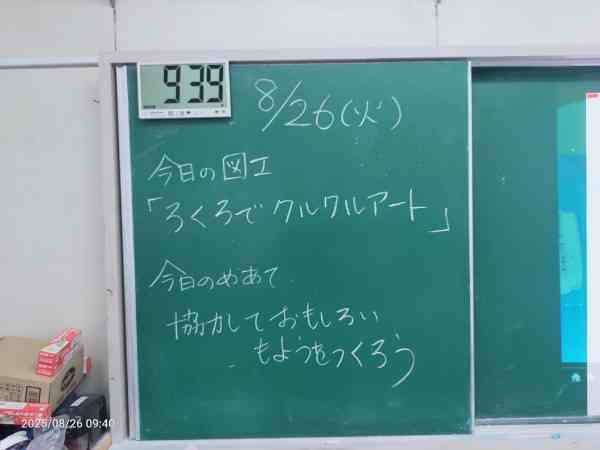 939
8/26(火)
今日の図工
「ろくろでクルクルアート」
今日のめあて
協力しておもしろい
もようをつくろう
2025/08/26 09:40